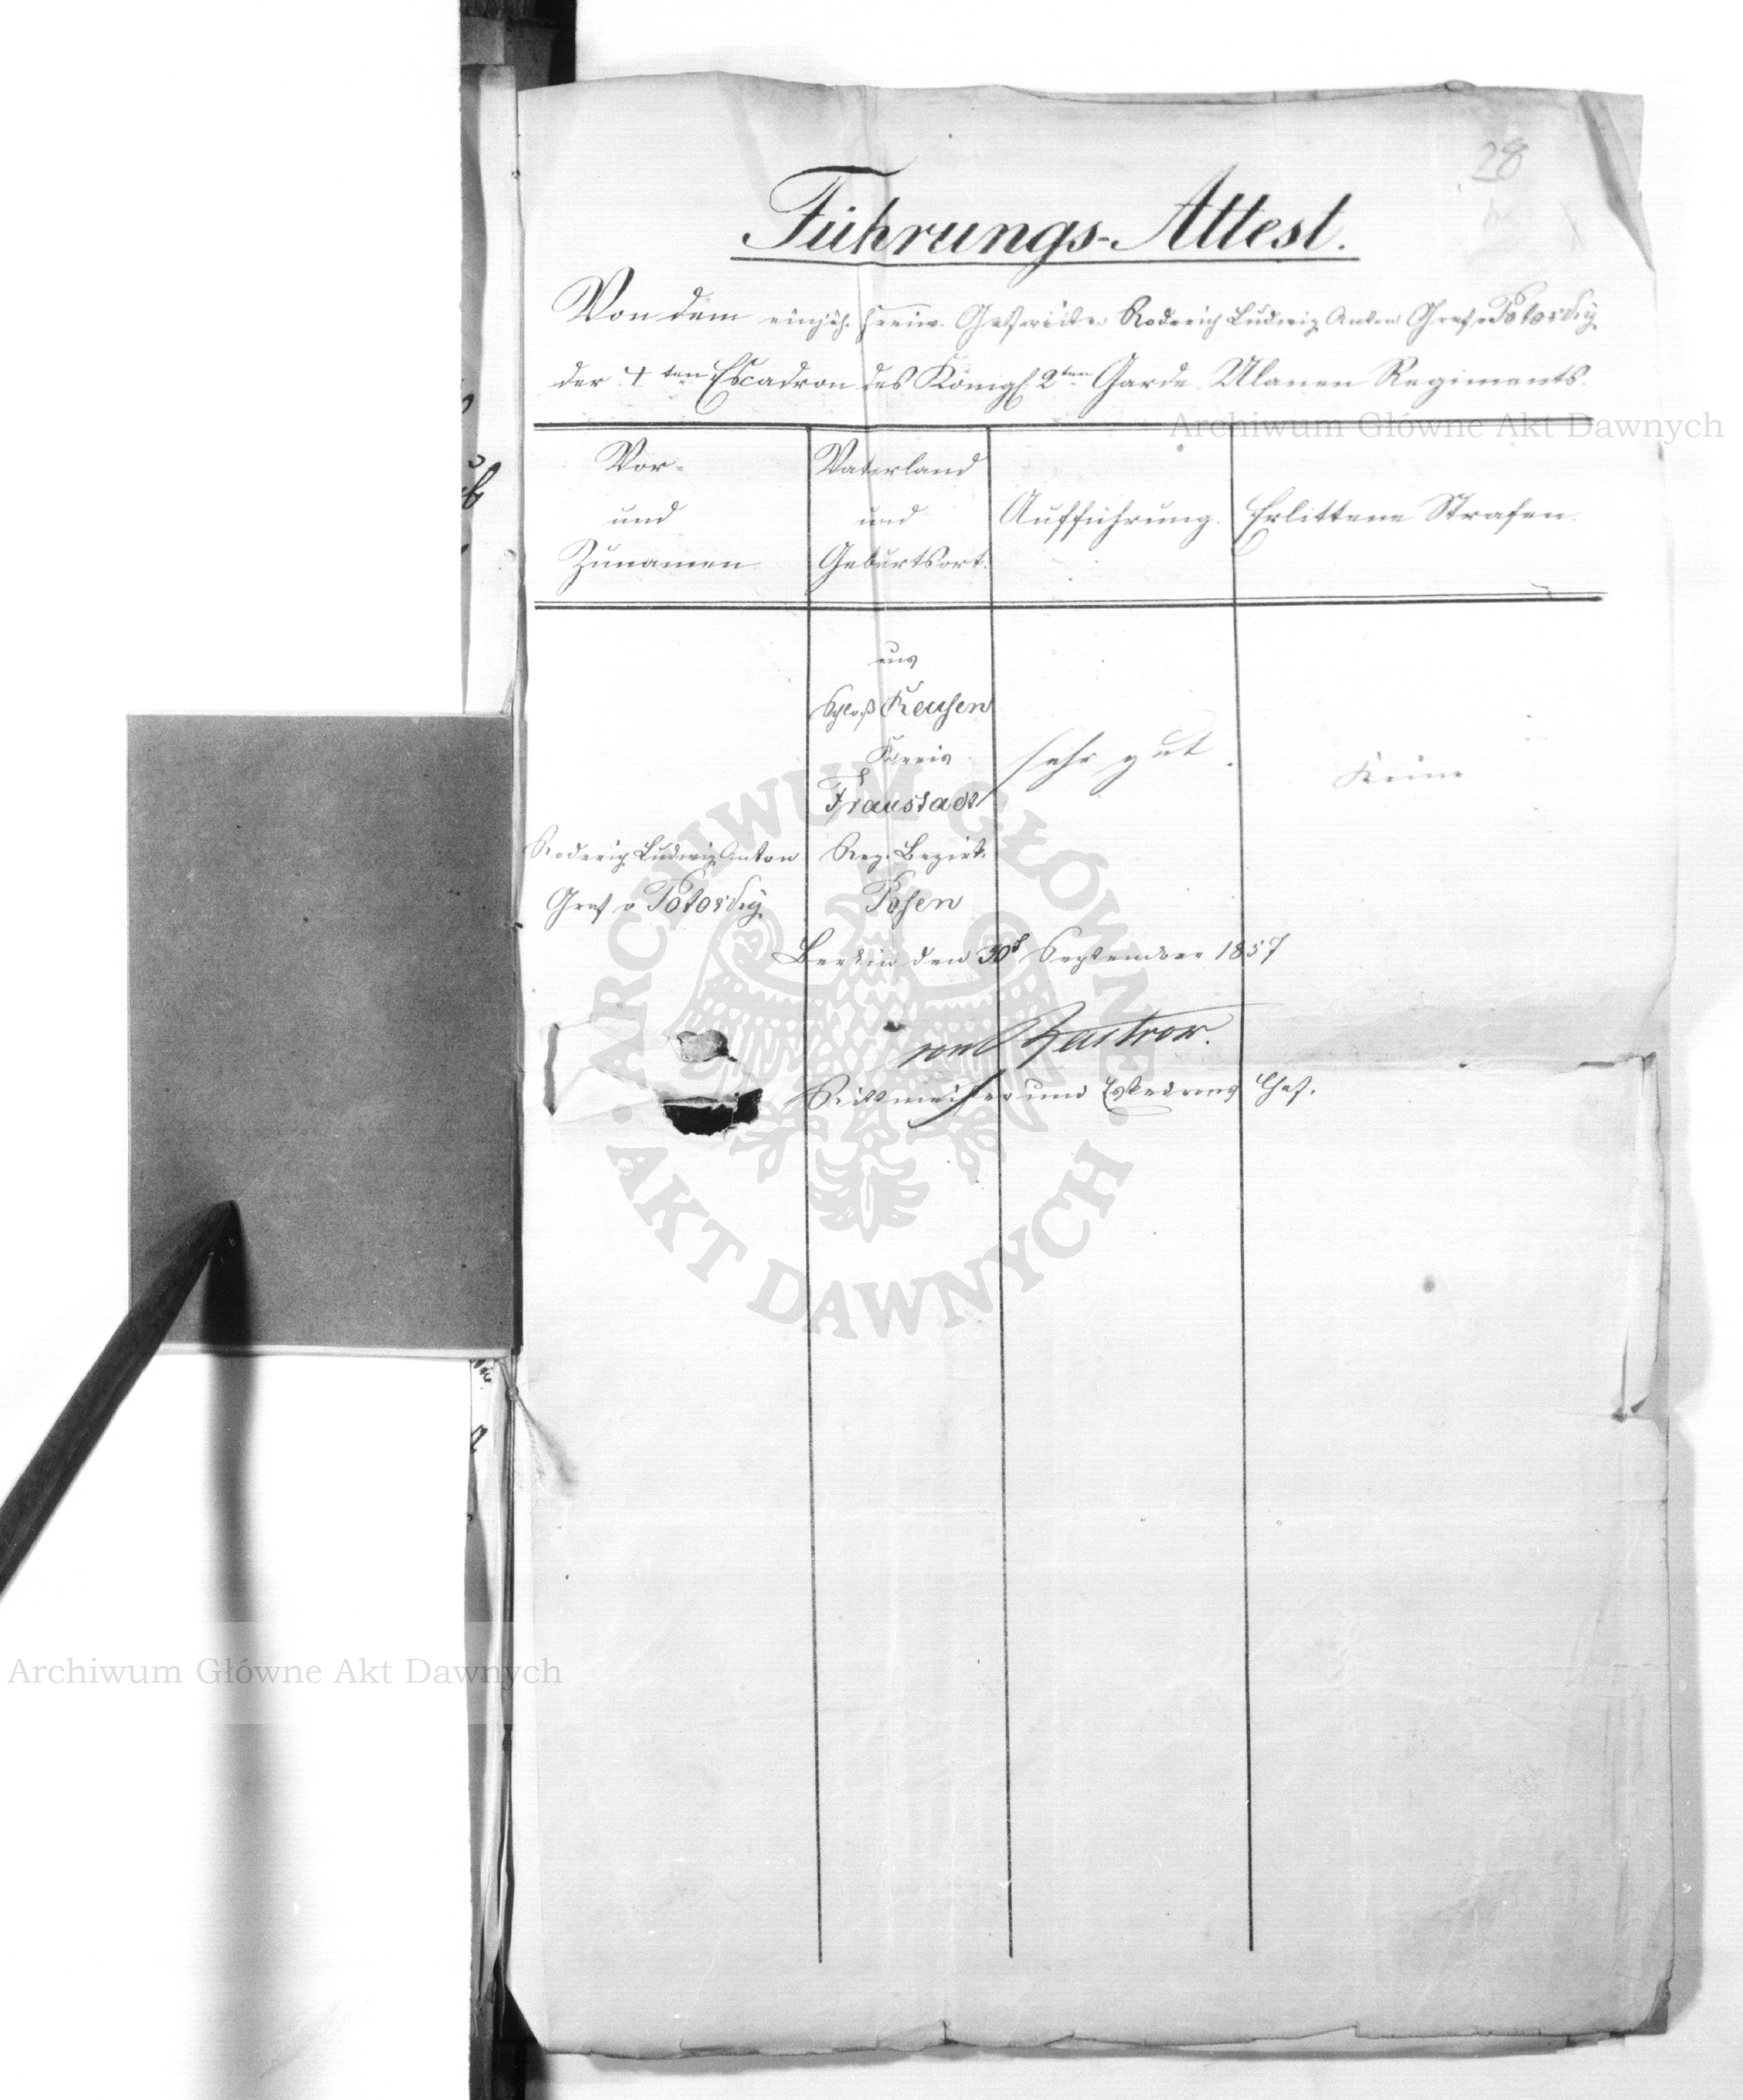 28
Führungs-Attest.
Von dem einjäh. freiw. Gefreiten Roderich Ludwig Anton Graf v Potocky
der 4ten Escadron des Königl. 2ten Garde Ulanen Regiments.
Archiwum Główne Akt Dawnych
Vor-
und
Zunamen
Vaterland
und
Geburtsort.
Aufführung.
Erlittene Strafen.
aus
Schloß Reusen
Kreis
Fraustadt
Reg. Bezirk
Posen
sehr gut.
Keine
Roderich Ludwig Anton
Graf v Potocky
Berlin den 30t September 1857
von Zastrow.
Rittmeister und Eskadrons Chef.
ARCHIWUM GŁÓWNE
AKT DAWNYCH
Archiwum Główne Akt Dawnych